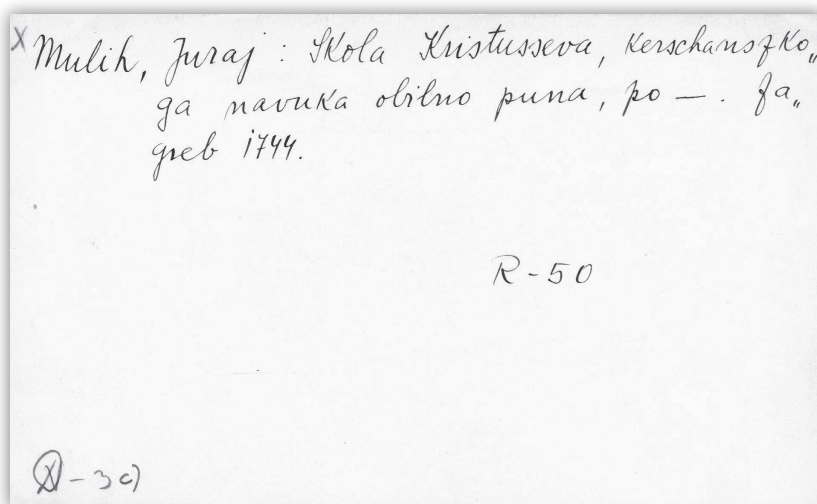 X Mulih, Juraj : Skola Kristusseva, kerschanszko„
ga navuka obilno puna, po — . Za„
greb 1744.
R-50
X - 3c)